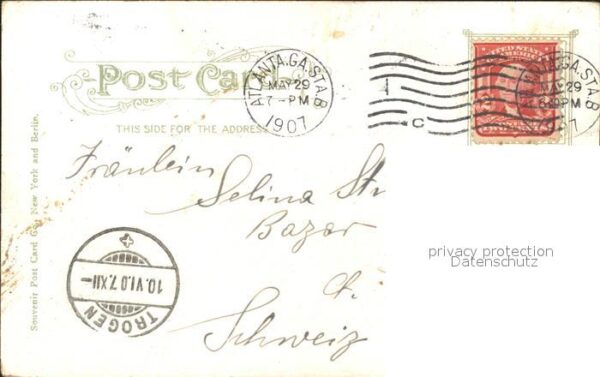 Post Card
THIS SIDE FOR THE ADDRESS
ATLANTA, GA. STA. B
MAY 29
7-PM
1907
C
UNITED STATES
OF AMERICA
ATLANTA, GA. STA. B
MAY 29
PM
1907
Fräulein
Selina Str
Bazar
Schweiz
TROGEN
10.VI.07.XII-
Souvenir Post Card Co., New York and Berlin.
privacy protection
Datenschutz